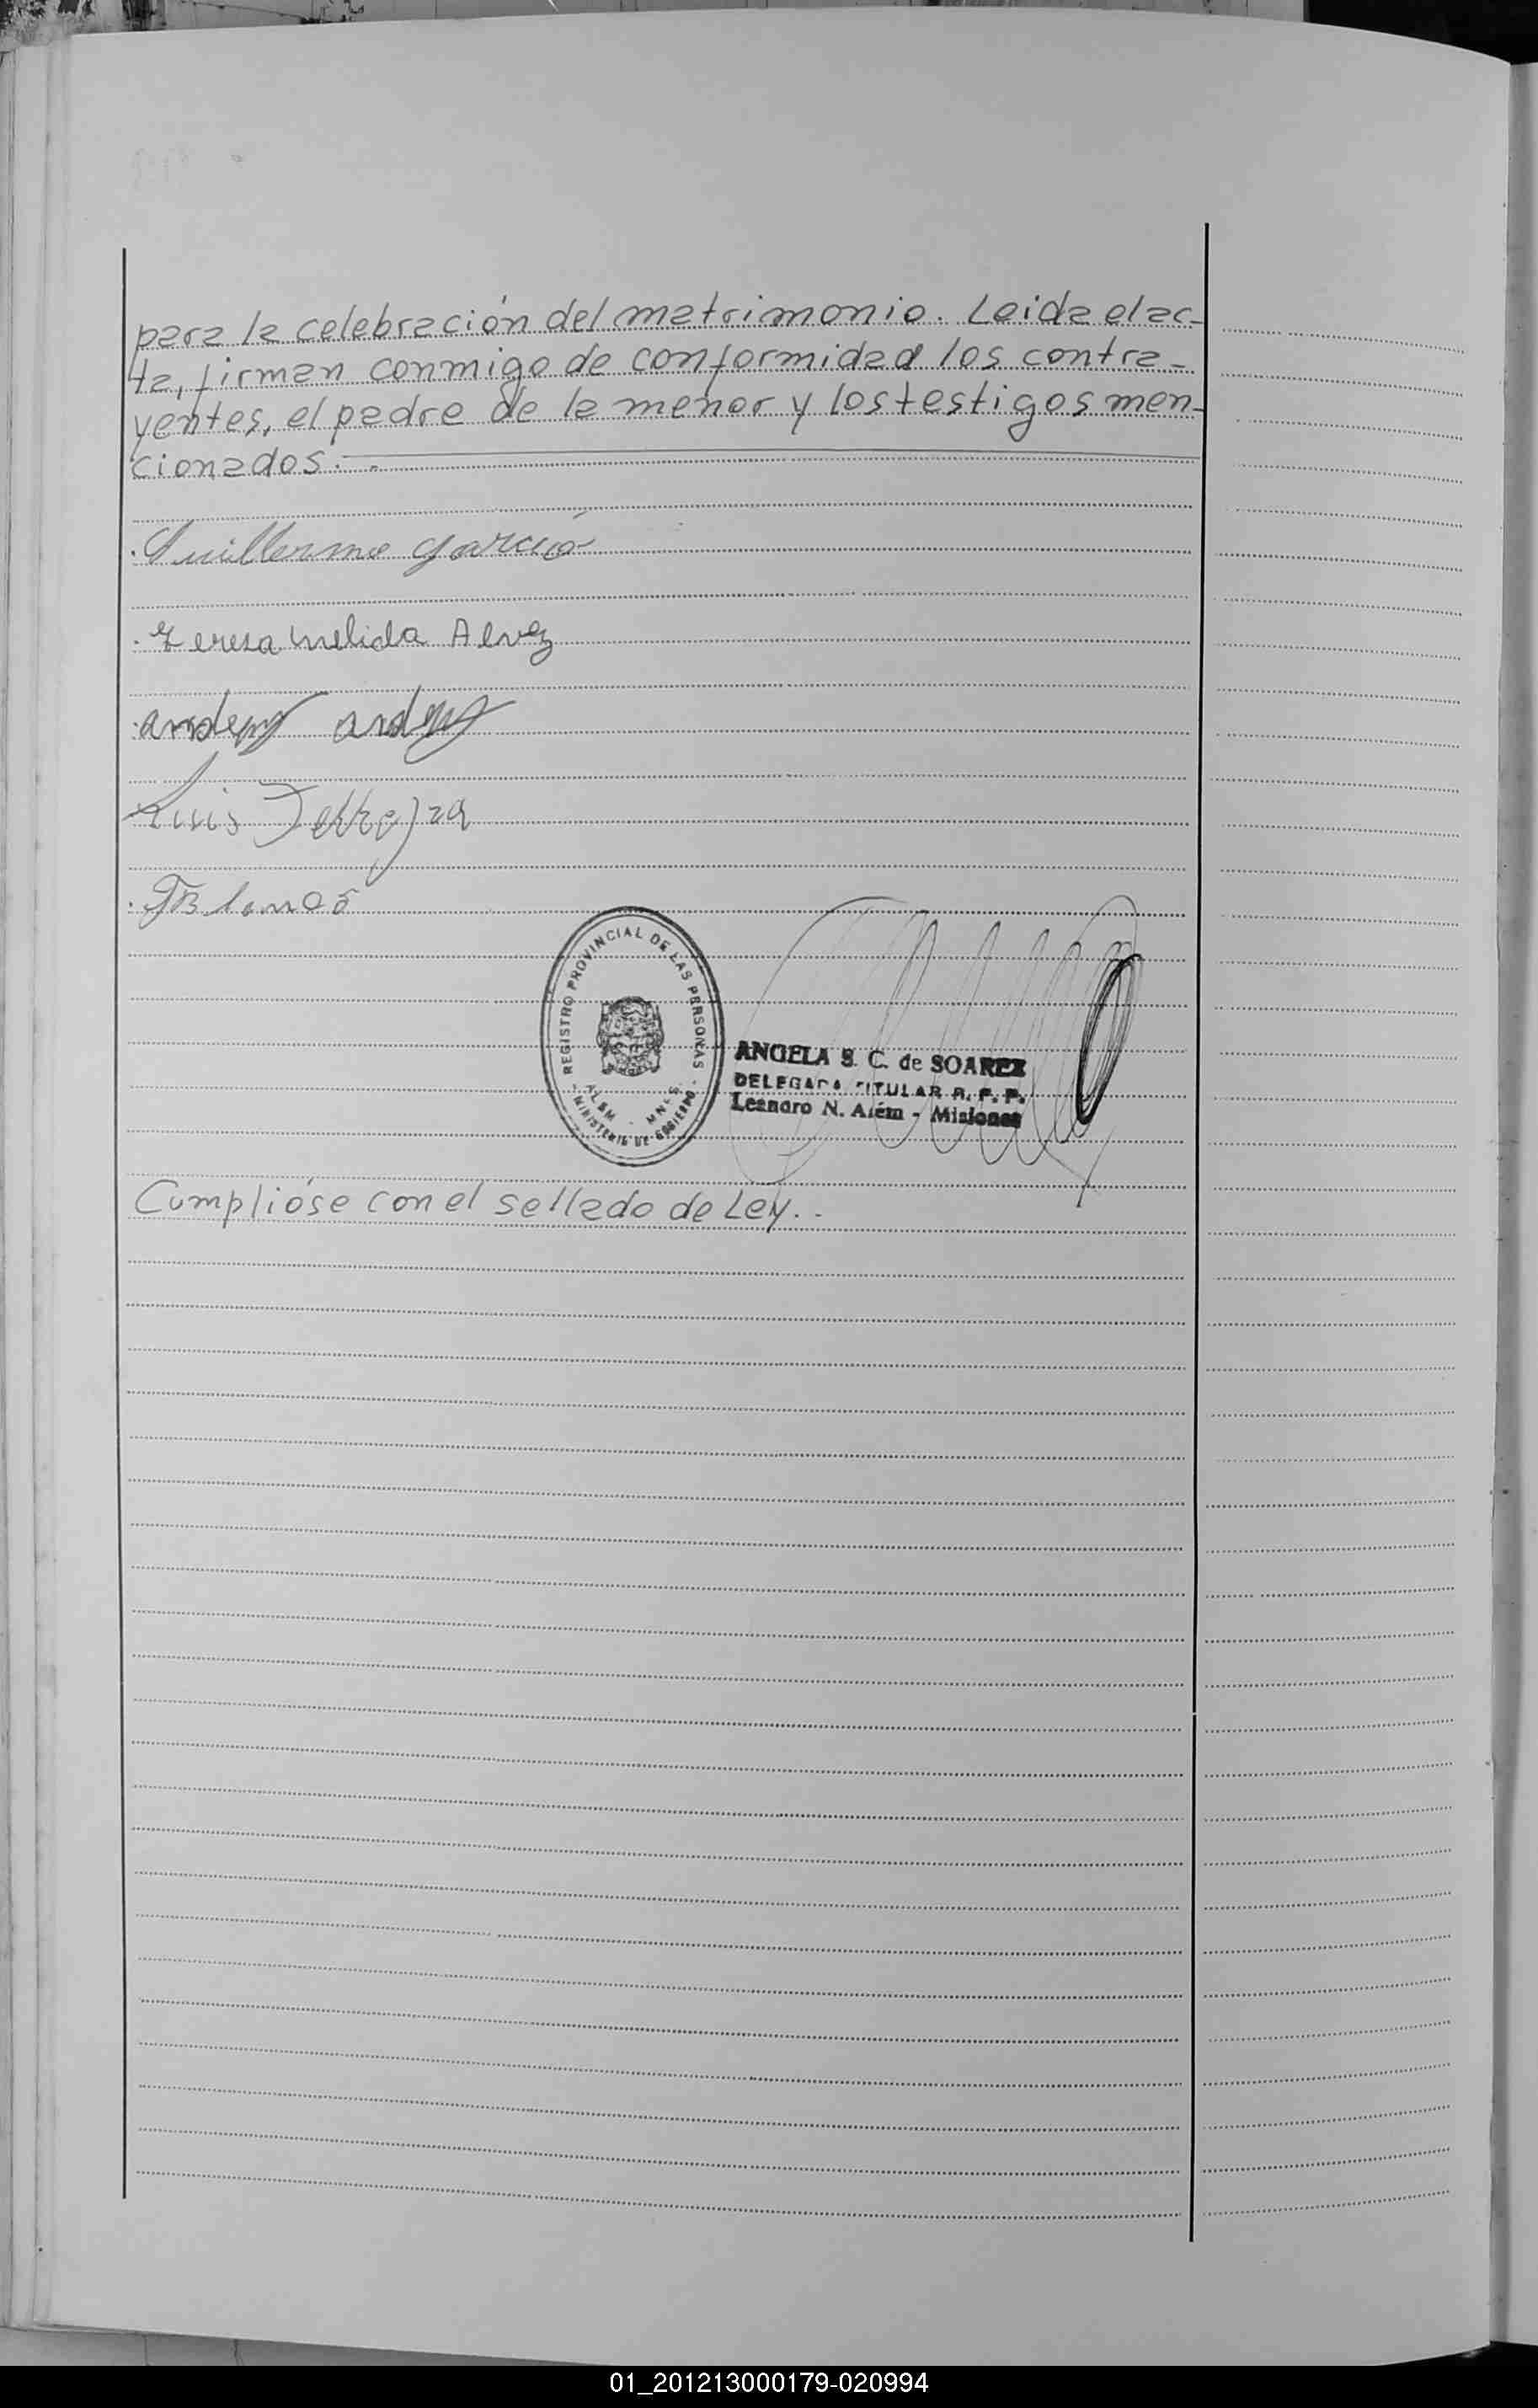 para la celebración del matrimonio. Leida el ac-
ta, firman conmigo de conformidad los contra-
yentes, el padre de la menor y los testigos men-
cionados.
Guillermo Garcia
Teresa Melida Alvez
Luis
Blanco
REGISTRO PROVINCIAL DE LAS PERSONAS
ALEM - MNES.
- MINISTERIO DE GOBIERNO -
ANGELA S. C. de SOAREZ
DELEGADA TITULAR R. P. P.
Leandro N. Além - Misiones
Cumplióse con el sellado de Ley.
01_201213000179-020994